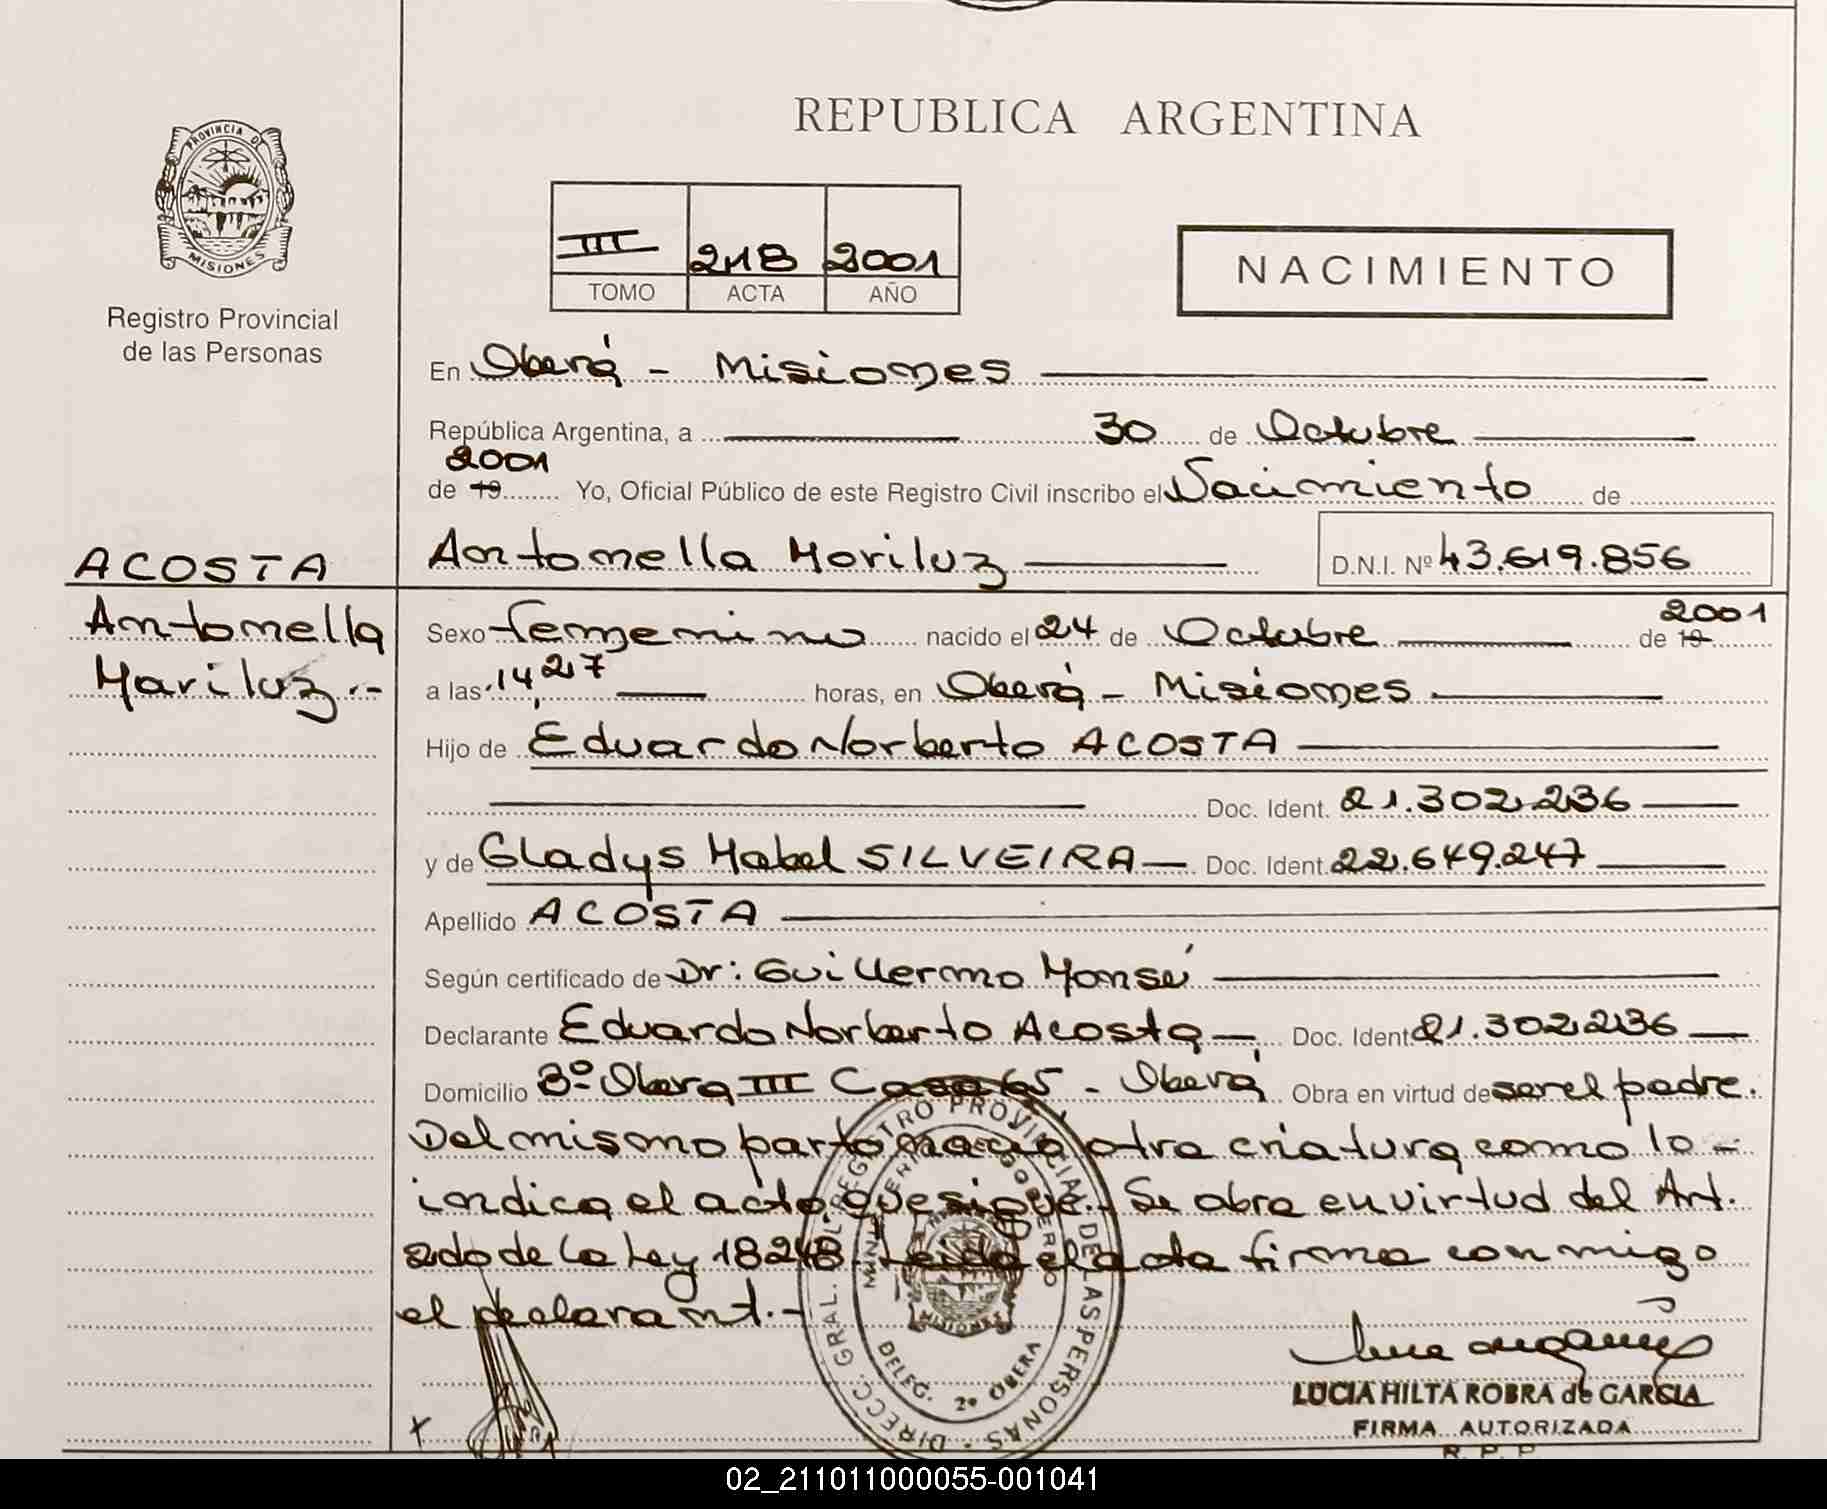 REPUBLICA ARGENTINA
PROVINCIA DE
MISIONES
Registro Provincial
de las Personas
III 218 2001
TOMO ACTA AÑO
NACIMIENTO
En Oberá - Misiones
República Argentina, a 30 de Octubre
2001
de 19 Yo, Oficial Público de este Registro Civil inscribo el Nacimiento de
ACOSTA
Antonella Mariluz
D.N.I. Nº 43.619.856
Antonella
Mariluz.-
Sexo femenino nacido el 24 de Octubre de 19 2001
a las 14,27 horas, en Oberá - Misiones
Hijo de Eduardo Norberto ACOSTA
Doc. Ident. 21.302.236
y de Gladys Mabel SILVEIRA Doc. Ident. 22.649.247
Apellido ACOSTA
Según certificado de Dr: Guillermo Monsé
Declarante Eduardo Norberto Acosta Doc. Ident. 21.302.236
Domicilio Bº Obera III Casa 65 - Oberá Obra en virtud de ser el padre.
Del mismo parto nacia otra criatura como lo -
indica el acta que sigue.- Se obra en virtud del Art.
2do de la Ley 18248. Leida el acta firma conmigo
el declarant.-
DIRECC. GRAL. DEL REGISTRO PROVINCIAL DE LAS PERSONAS
MISIONES
DELEG. 2º OBERA
LUCIA HILTA ROBRA de GARCIA
FIRMA AUTORIZADA
R. P. P.
02_211011000055-001041